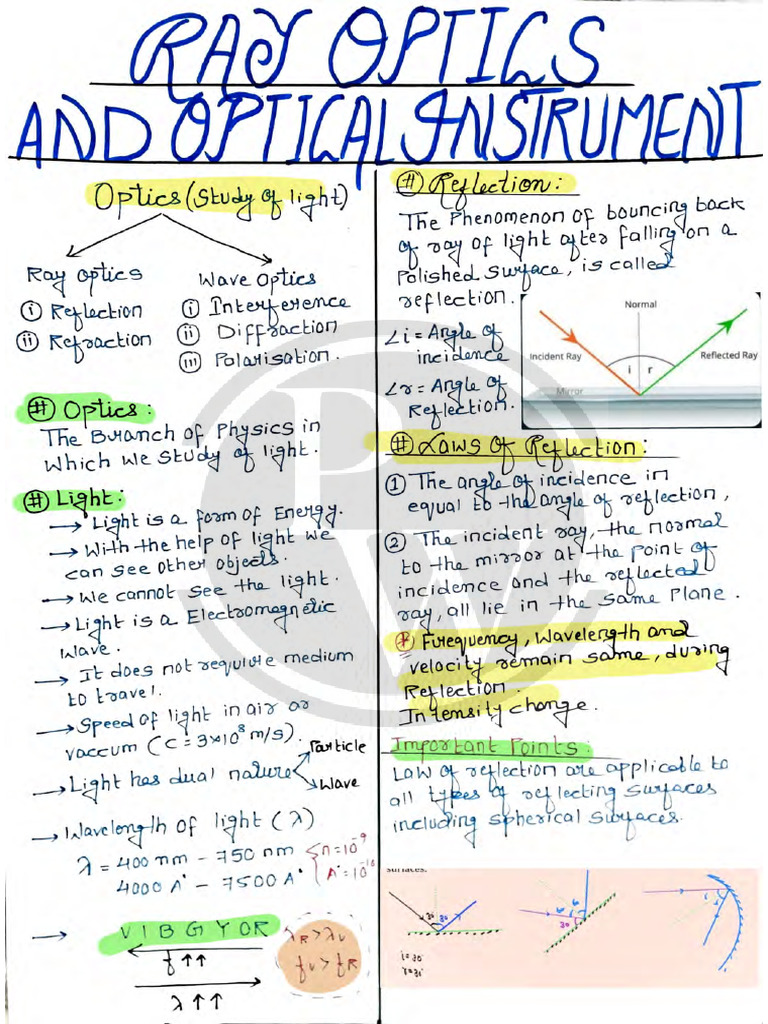 RAY OPTICS
AND OPTICAL INSTRUMENT
Optics (Study of light)
Ray Optics
(i) Reflection
(ii) Refraction
Wave Optics
(i) Interference
(ii) Diffraction
(iii) Polarisation.
(#) Optics:
The Branch of Physics in
which we study of light.
(#) Light:
→ Light is a form of Energy.
→ With the help of light we
can see other objects.
→ We cannot see the light.
→ Light is a Electromagnetic
wave.
→ It does not require medium
to travel.
→ Speed of light in air or
vaccum (c = 3×10⁸ m/s).
→ Light has dual nature
Particle
Wave
→ Wavelength of light (λ)
λ = 400 nm - 750 nm
4000 A° - 7500 A°
n = 10⁻⁹
A° = 10⁻¹⁰
→ V I B G Y O R
f ↑↑
λ ↑↑
λR > λV
fV > fR
(#) Reflection:
The Phenomenon of bouncing back
of ray of light after falling on a
Polished surface, is called
reflection.
∠i = Angle of
incidence
∠r = Angle of
Reflection.
Normal
Incident Ray
Reflected Ray
i r
Mirror
(#) Laws of Reflection:
(1) The angle of incidence in
equal to the angle of reflection,
(2) The incident ray, the normal
to the mirror at the point of
incidence and the reflected
ray, all lie in the same Plane.
Frequency, Wavelength and
velocity remain same, during
Reflection.
Intensity change.
Important Points:
Law of reflection are applicable to
all types of reflecting surfaces
including spherical surfaces.
surfaces.
30